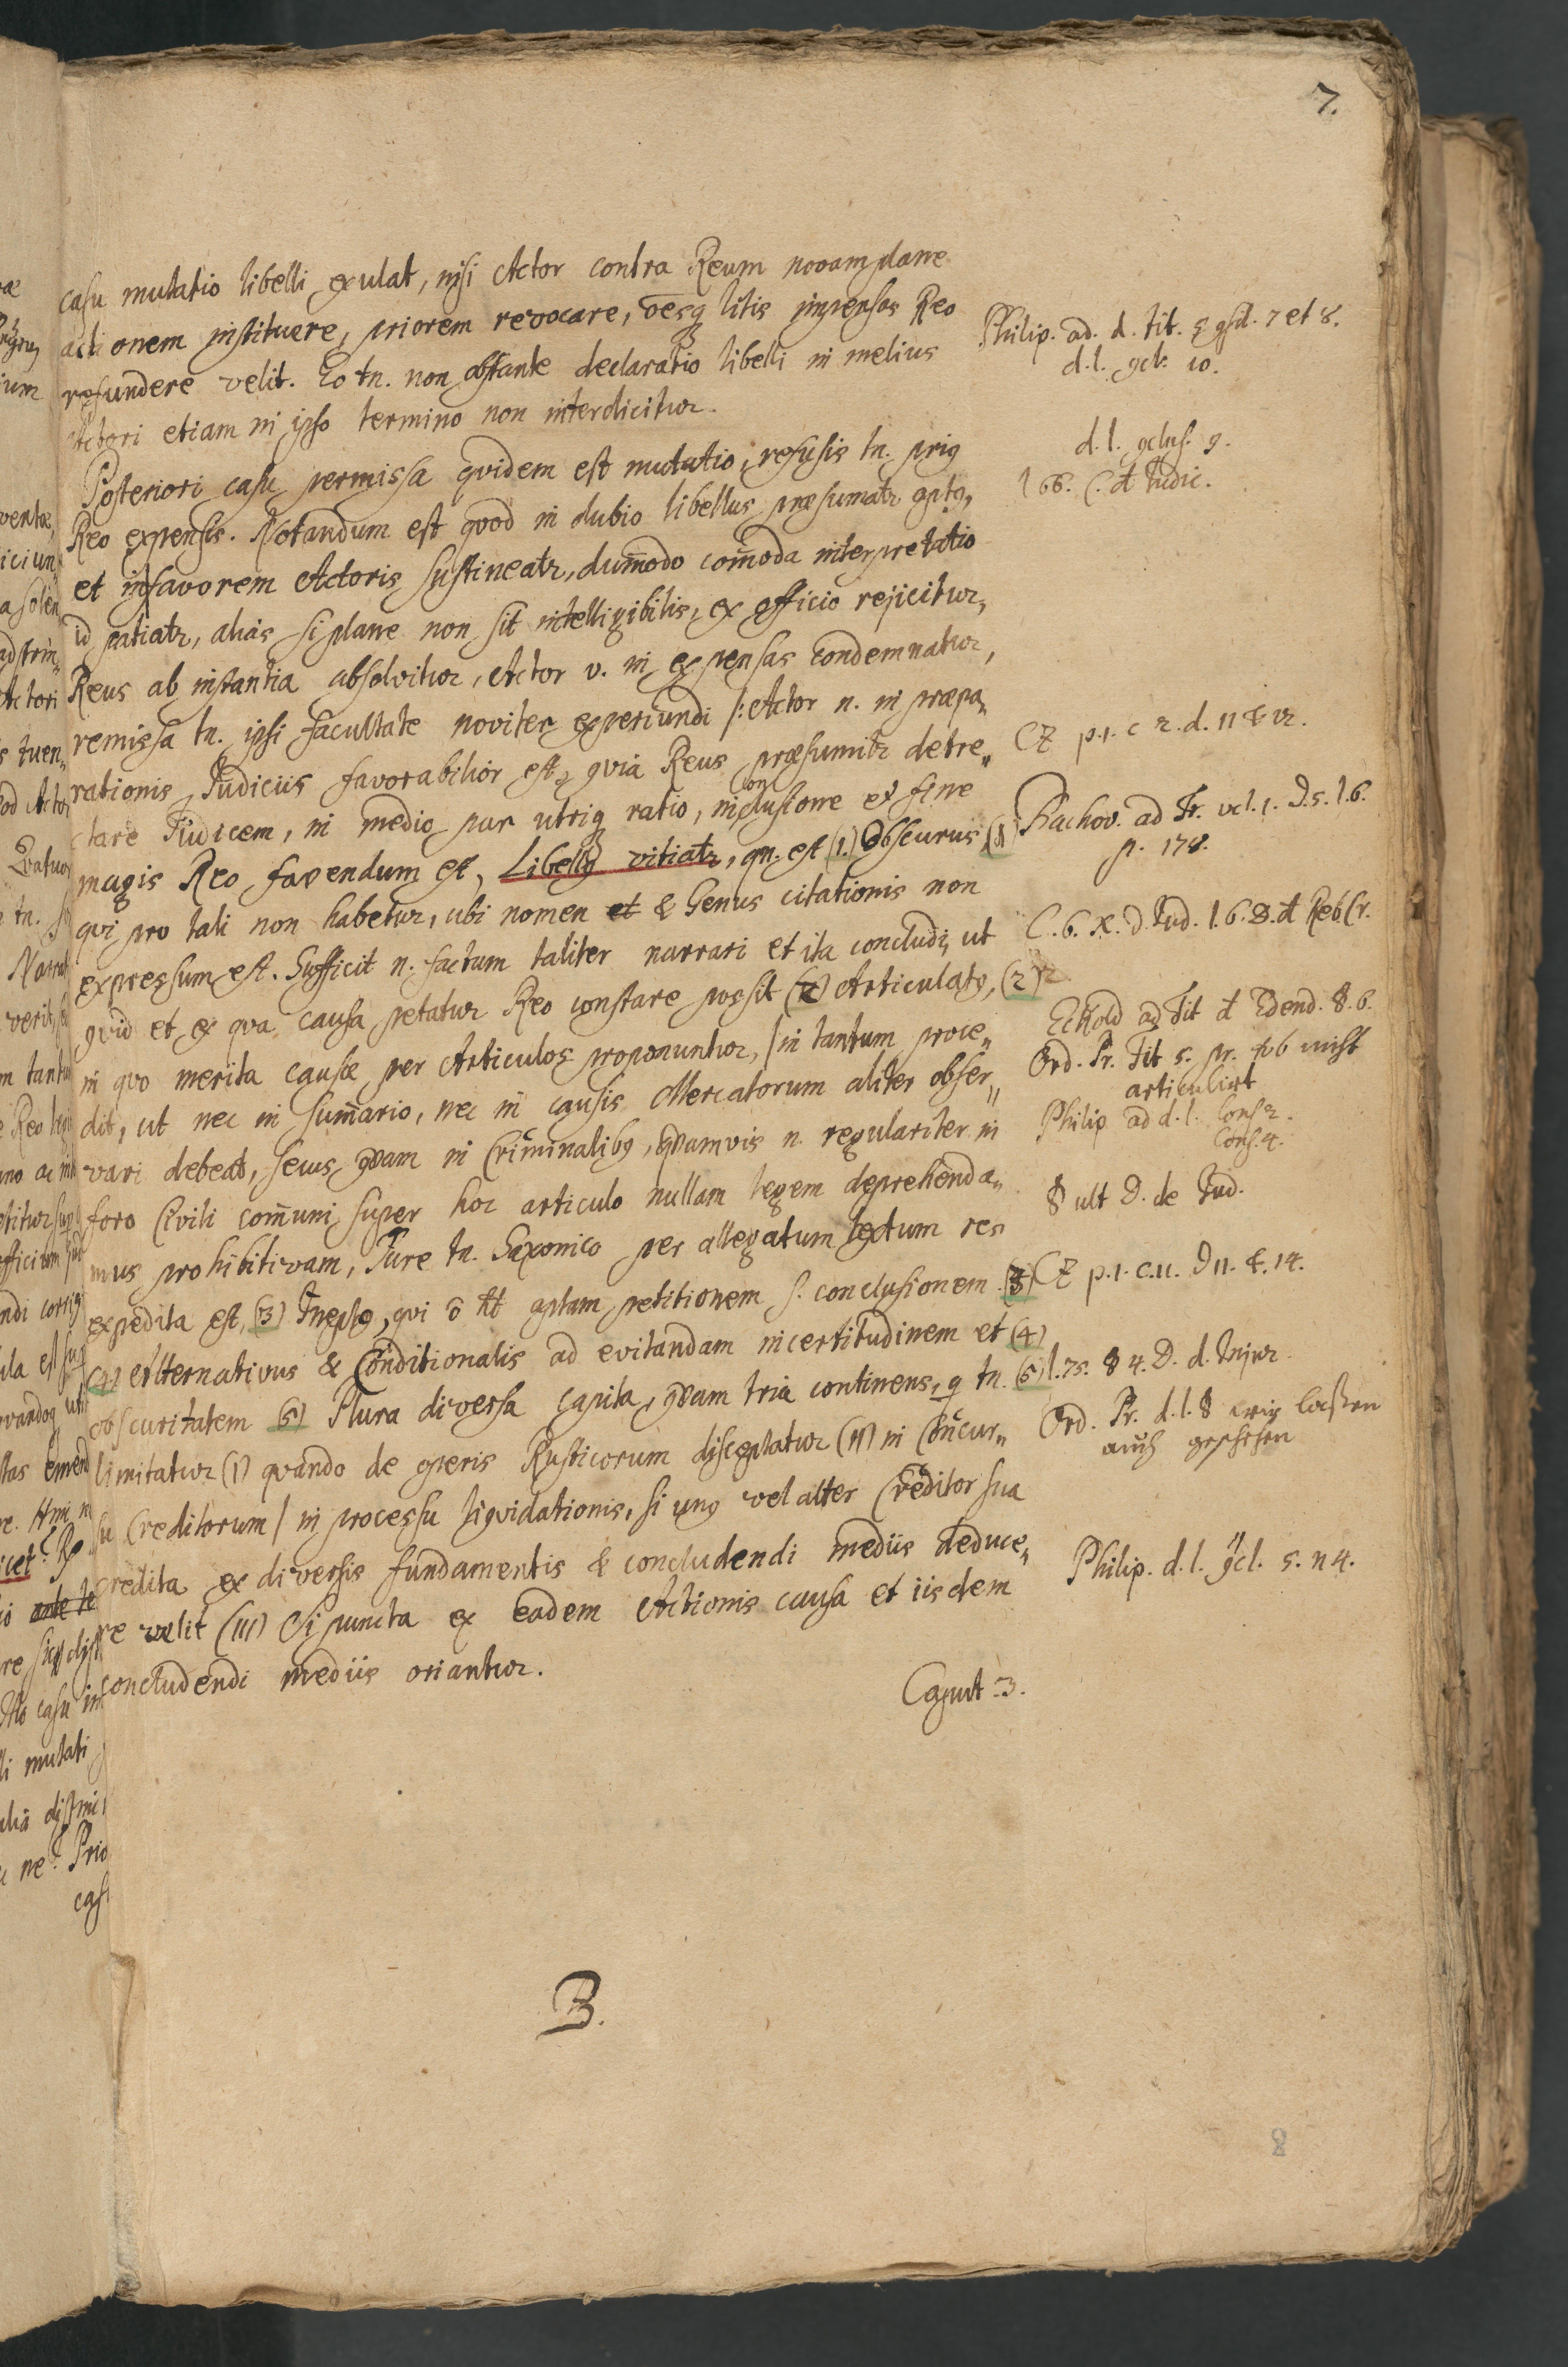 7.
casu mutatio libelli exulat, nisi Actor contra Reum novam plane
actionem instituere, priorem revocare, oesq litis impensas Reo
refundere velit. Eo tn. non obstante declaratio libelli in melius
Actori etiam in ipso termino non interdicitur.
Posteriori casu permissa qvidem est mutatio, refusis tn. prig
Reo expensis. Notandum est qvod in dubio libellus præsumatr apto,
et in favorem Actoris sustineatr, dum̄odo com̄oda interpretatio
id patiatr, alias si plane non sit intelligibilis, ex officio rejicitur,
Reus ab instantia absolvitur, Actor v. in expensas condemnatur,
remissa tn. ipsi facultate noviter experiundi /: Actor n. in præpa„
rationis Judiciis favorabilior est, qvia Reus præsumitr detre„
ctare Judicem, in medio par utriq ratio, in conclusione et fine
magis Reo favendum est, Libellg vitiatr, qn. est (1.) Obscurus (1)
qvi pro tali non habetur, ubi nomen et & Genus citationis non
expressum est. Sufficit n. factum taliter narrari et ita concludi, ut
qvid et ex qva causa petatur Reo constare possit (2) Articulatg, (2)
in qvo merita causæ per Articulos proponuntur, / in tantum proce„
dit, ut nec in sum̄ario, nec in causis Mercatorum aliter obser„
vari debeat, secus qvam in Criminalibg, qvamvis n. regulariter in
foro Civili com̄uni super hoc articulo nullam legem deprehenda„
mus prohibitivam, Jure tn. Saxonico per allegatum textum res
expedita est, (3) Ineptg, qvi ō ht aptam petitionem s. conclusionem (3)
(4) Alternativus & Conditionalis ad evitandam incertitudinem et (4)
obscuritatem (5) Plura diversa capita, qvam tria continens, q tn. (5)
limitatur (I) qvando de operis Rusticorum disceptatur (II) in Concur„
su Creditorum / in processu liqvidationis, si ung vel alter Creditor sua
credita ex diversis fundamentis & concludendi mediis deduce„
re velit (III) Si puncta ex eadem Actionis causa et iisdem
concludendi mediis oriantur.
Caput 3.
B.
Philip. ad. d. tit. 7 et 8.
d. l. 10.
d. l. 9.
l 66. Judic.
CZ p. 1. c 2. d. 11 & 12.
Bachov. ad Tr. vol. 1. D. 5. l. 6.
p. 178.
C. 6. X. d. Jud. l. 6. D. d Reb Cr.
Eckold ad Tit d Edend. §. 6.
Ord. Pr. Tit 5. pr. ob nicht
articulirt
Philip ad d. l. Cons 2.
Cons. 4.
§ ult D. de Jud.
CZ p. 1. c. 11. D 11. & 14.
l. 75. § 4. D. d. Injur.
Ord. Pr. d. l. § laßen
auch geschehen
Philip. d. l. 5. n 4.